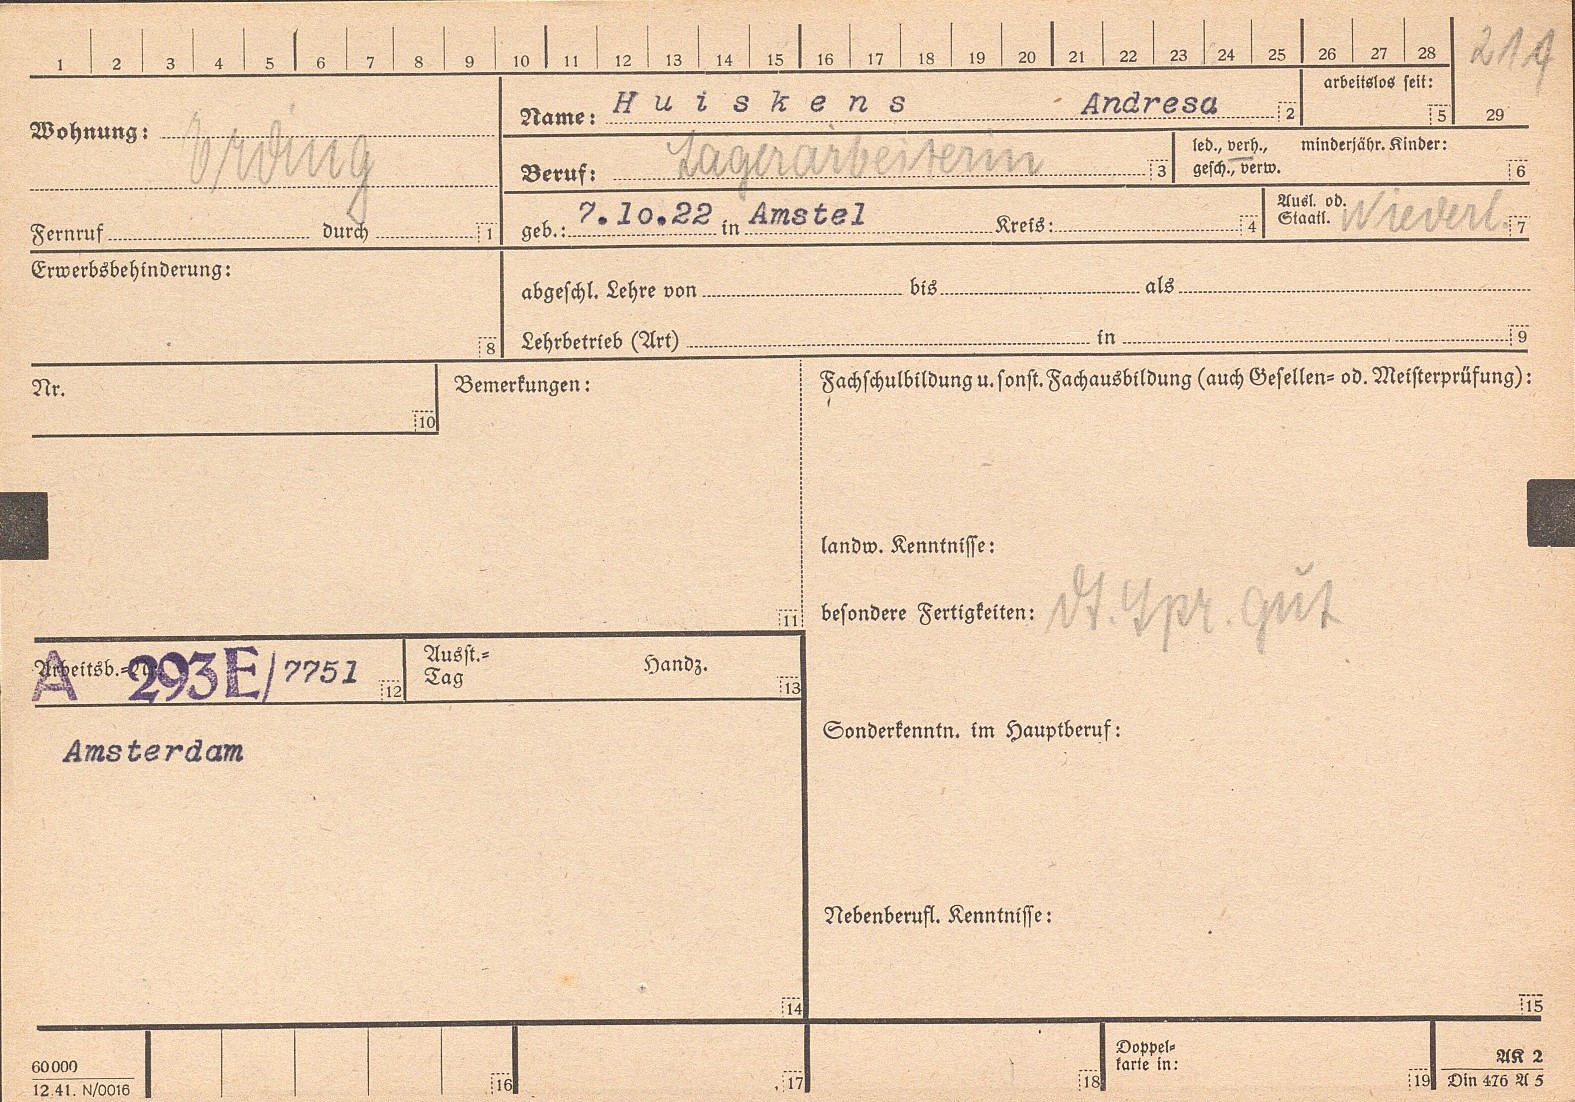 1 2 3 4 5 6 7 8 9 10 11 12 13 14 15 16 17 18 19 20 21 22 23 24 25 26 27 28
Wohnung: Erding
Fernruf durch 1
Name: Huiskens Andresa 2
arbeitslos seit: 5
29
Beruf: Lagerarbeiterin 3
led., verh., minderjähr. Kinder:
gesch., verw. 6
geb.: 7.10.22 in Amstel Kreis: 4
Ausl. od.
Staatl. Niederl. 7
Erwerbsbehinderung:
8
abgeschl. Lehre von bis als
Lehrbetrieb (Art) in 9
Nr.
10
Bemerkungen:
11
Fachschulbildung u. sonst. Fachausbildung (auch Gesellen= od. Meisterprüfung):
landw. Kenntnisse:
besondere Fertigkeiten: dt. Spr. gut
Arbeitsb.=Nr. A 293E/7751 12
Ausst.= Handz.
Tag 13
Amsterdam
14
Sonderkenntn. im Hauptberuf:
Nebenberufl. Kenntnisse:
15
60000
12.41. N/0016
16
17
18
Doppel=
karte in:
19
AK 2
Din 476 A 5